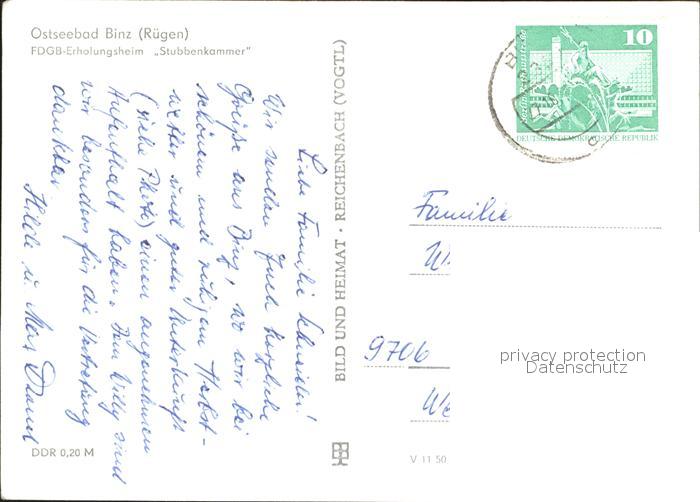 Ostseebad Binz (Rügen)
FDGB-Erholungsheim „Stubbenkammer"
Liebe Familie Schneider!
Wir senden Euch herzliche
Grüße aus Binz, wo wir bei
schönem und ruhigem Herbst-
wetter und guter Unterkunft
(siehe Photo) einen angenehmen
Aufenthalt haben. Dem Willy sind
wir besonders für die Vertretung
dankbar
Hilde u.
DDR 0,20 M
BILD UND HEIMAT · REICHENBACH (VOGTL)
V 11 50
10
DEUTSCHE DEMOKRATISCHE REPUBLIK
Familie
9706
We
privacy protection
Datenschutz